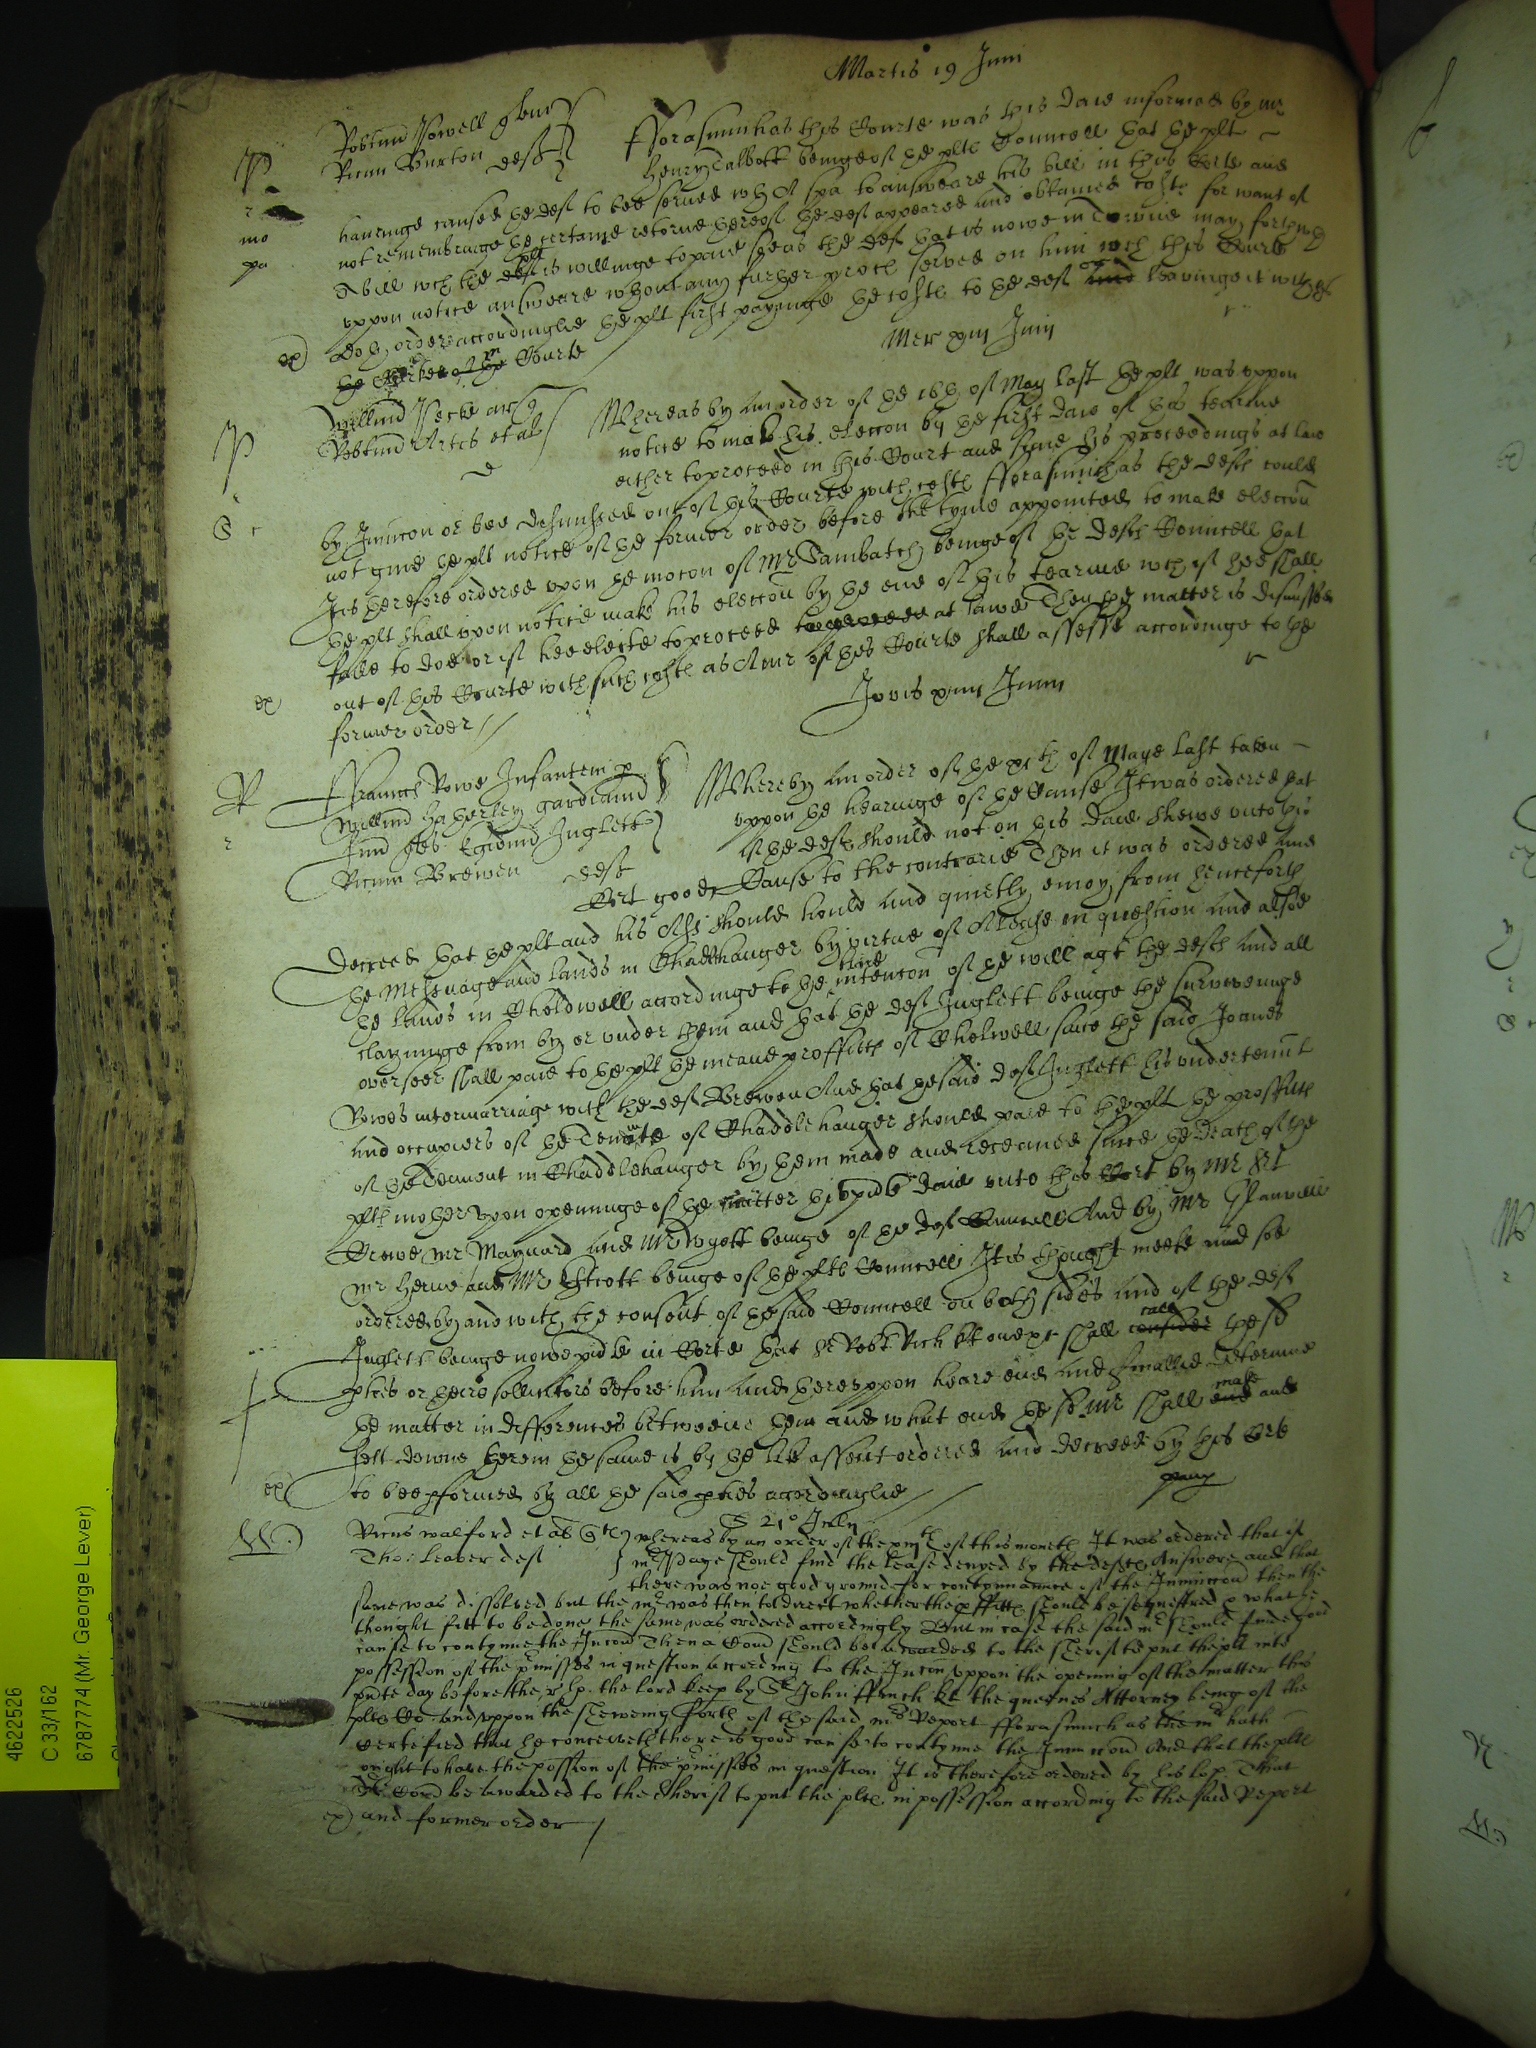 Martis 19 Junii
P
Robtum Powell gen
Ricum Burton deft
Fforasmuch as this Courte was this daie informed by mr
Henry Talbott beinge of the plts Councell that the plt
r
mo
havinge caused the deft to bee served wth A spa to answeare his bill in this Corte and
not remembringe the certaine retorne thereof the deft appeared and obtained costs for want of
A bill wch the deft plt is willinge to paie soe as the deft that is nowe in Towne may forthwth
uppon notice answeare wthout any further proces served on him wch this Courte
ex
doth order accordinglie the plt first payinge the costs to the deft and or leavinge it wth the
the Courte
Mer Junii
P
Willmum Pecke ar
Robtum Artis et al
d
Whereas by an order of the 16th of May last the plt was uppon
notice to make his eleccon by the first daie of this tearme
either to proceed in this Court and staie his proceedings at law
by Iniunccon or bee dismissed out of this Courte with costs Fforasmuch as the defts could
not give the plt notice of the former order before the tyme appointed to make eleccon
It is therefore ordered upon the mocon of Mr Tanibatch beinge of the defts Councell that
the plt shall upon notice make his eleccon by the end of this tearme wch if hee shall
faile to doe or if hee electe to proceed at lawe Then the matter is dismissed
ex
out of this Courte with such costs as A mr of this Courte shall assesse accordinge to the
former order
Jovis Junii
R
r
Ffrancis Rowe Infantem p
Willmum Hatherley gardianum
suum Egidium Inglett
Ricum Brewen deft
Whereby an order of the xith of Maye last taken
uppon the hearinge of the Cause It was ordered that
if the defts should not on this daie shewe unto this
Cort good Cause to the contrarie Then it was ordered and
Decreed that the plt and his Ass should hould and quietly enioy from henceforth
the Messuage and lands in Chaddlehanger by virtue of A lease in question and alsoe
the lands in Choldwell accordinge to the true intencon of the will agt the defts and all
clayminge from by or under them and that the deft Inglett beinge the surviveinge
overseer shall paie to the plt the meane proffitts of Cholwell since the said Joanes
Rowes intermarriage with the deft Brewen And that the said deft Inglett his undertennts
and occupiers of the Tenemte of Chaddlehanger should paie to the plt the proffitts
of the Tenement in Chaddlehanger by them made and receaved since the Death of the
plts mother Upon openinge of the matter this pnte daie unto this Cort by Mr Srt
Crewe mr Maynard and Mr Wyott beinge of the deft Councell And by Mr Glanville
mr Herne and Mr Estcott beinge of the plts Councell It is thought meete and soe
ordered by and with the consent of the said Councell on both sides and of the deft
Inglett beinge nowe pnte in Corte that Sr Robt Rich kt one shall consider call the sd
pties or theire sollicitors before him and thereuppon heare end and finallie determine
the matter in differences betweene them and what end the sd Mr shall end make and
sett downe therein the same is by the like assent ordered and decreed by this Corte
ex
to bee pformed by all the said pties accordinglie
S 21o Julii
W
Ricus walford et al
Tho: Leaver deft
whereas by an order of the xiijth of this moneth It was ordered that if
mr Page should find the lease denyed by the defts Answere and that
there was noe good ground for contynuaunce of the Iniunccon then the
same was dissolved but the mr was then to direct whether the pffitts should be sequestred & what he
thought fitt to be done the same was ordered accordingly But in case the said mr should finde good
cause to contynue the Iniunccon Then a Comd should be awarded to the Sherif to put the plt into
possession of the pmisses in question according to the Iniunccon Uppon the opening of the matter this
pnte day before the r. h. the lord keep by Sr John Ffinch kt the queenes Attorney being of the
plts Co and uppon the shewing forth of the said mrs Report fforasmuch as the mr hath
certefied that he conceiveth there is good cause to contynue the Iniunccon And that the plts
ought to have the possion of the pmisses in question It is therefore ordered by his lop That
A Comd be awarded to the Sherif to put the plts in possession according to the said Report
ex and former order
4622526
C 33/162
6787774 (Mr. George Lever)